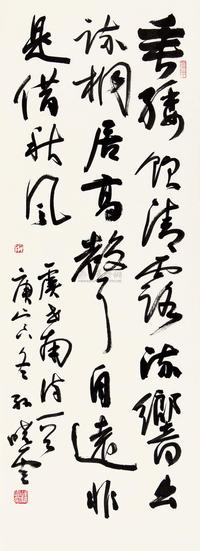 垂緌飲清露流響出
疏桐居高聲自遠非
是借秋風
虞世南詩一首
庚冬孫曉雲